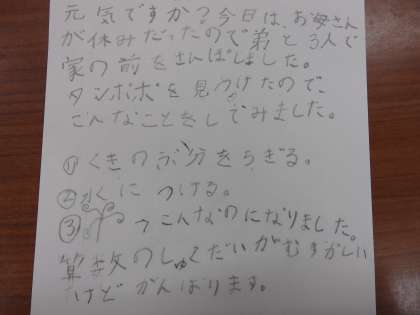 元気ですか?今日は、お母さん
が休みだったので弟と3人で
家の前をさんぽしました。
タンポポを見つけたので、
こんなことをしてみました。
① くきのぶ分をちぎる。
② 水につける。
③ →こんなのになりました。
算数のしゅくだいがむずかしい
けどがんばります。